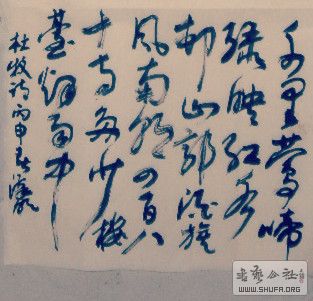 千里莺啼
绿映红水
村山郭酒旗
风南朝四百八
十寺多少楼
臺烟雨中
杜牧诗丙申
书艺公社
WWW.SHUFA.ORG